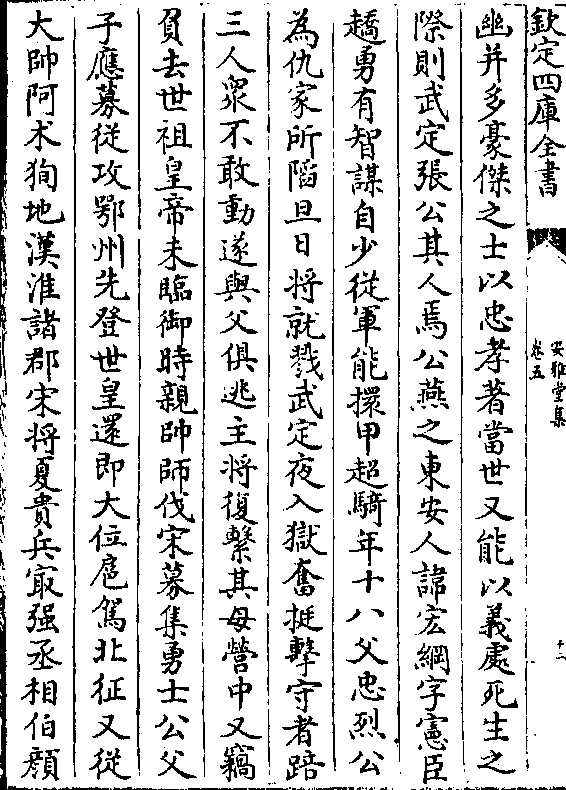 欽定四庫全書
安雅堂集
卷五
十二
幽并多豪傑之士以忠孝著當世又能以義處死生之
際則武定張公其人焉公燕之東安人諱宏綱字憲臣
趫勇有智謀自少從軍能擐甲超騎年十八父忠烈公
為仇家所陷旦日將就戮武定夜入獄奮挺擊守者踣
三人衆不敢動遂與父俱逃主將復繫其母營中又竊
負去世祖皇帝未臨御時親帥師伐宋募集勇士公父
子應募從攻鄂州先登世皇還即大位扈駕北征又從
大帥阿术狥地漢淮諸郡宋将夏貴兵㝡强丞相伯顔